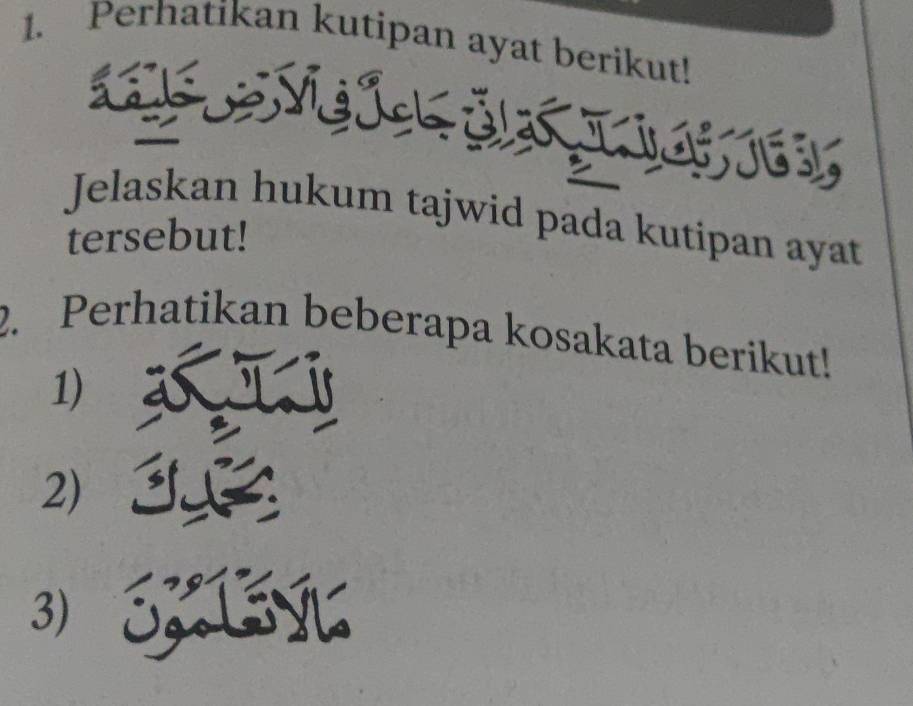 1. Perhatikan kutipan ayat berikut!
وَاِذْ قَالَ رَبُّكَ لِلْمَلٰۤىِٕكَةِ اِنِّيْ جَاعِلٌ فِى الْاَرْضِ خَلِيْفَةً
Jelaskan hukum tajwid pada kutipan ayat
tersebut!
2. Perhatikan beberapa kosakata berikut!
1) لِلْمَلٰۤىِٕكَةِ
2) بِحَمْدِكَ
3) مَالَا تَعْلَمُوْنَ